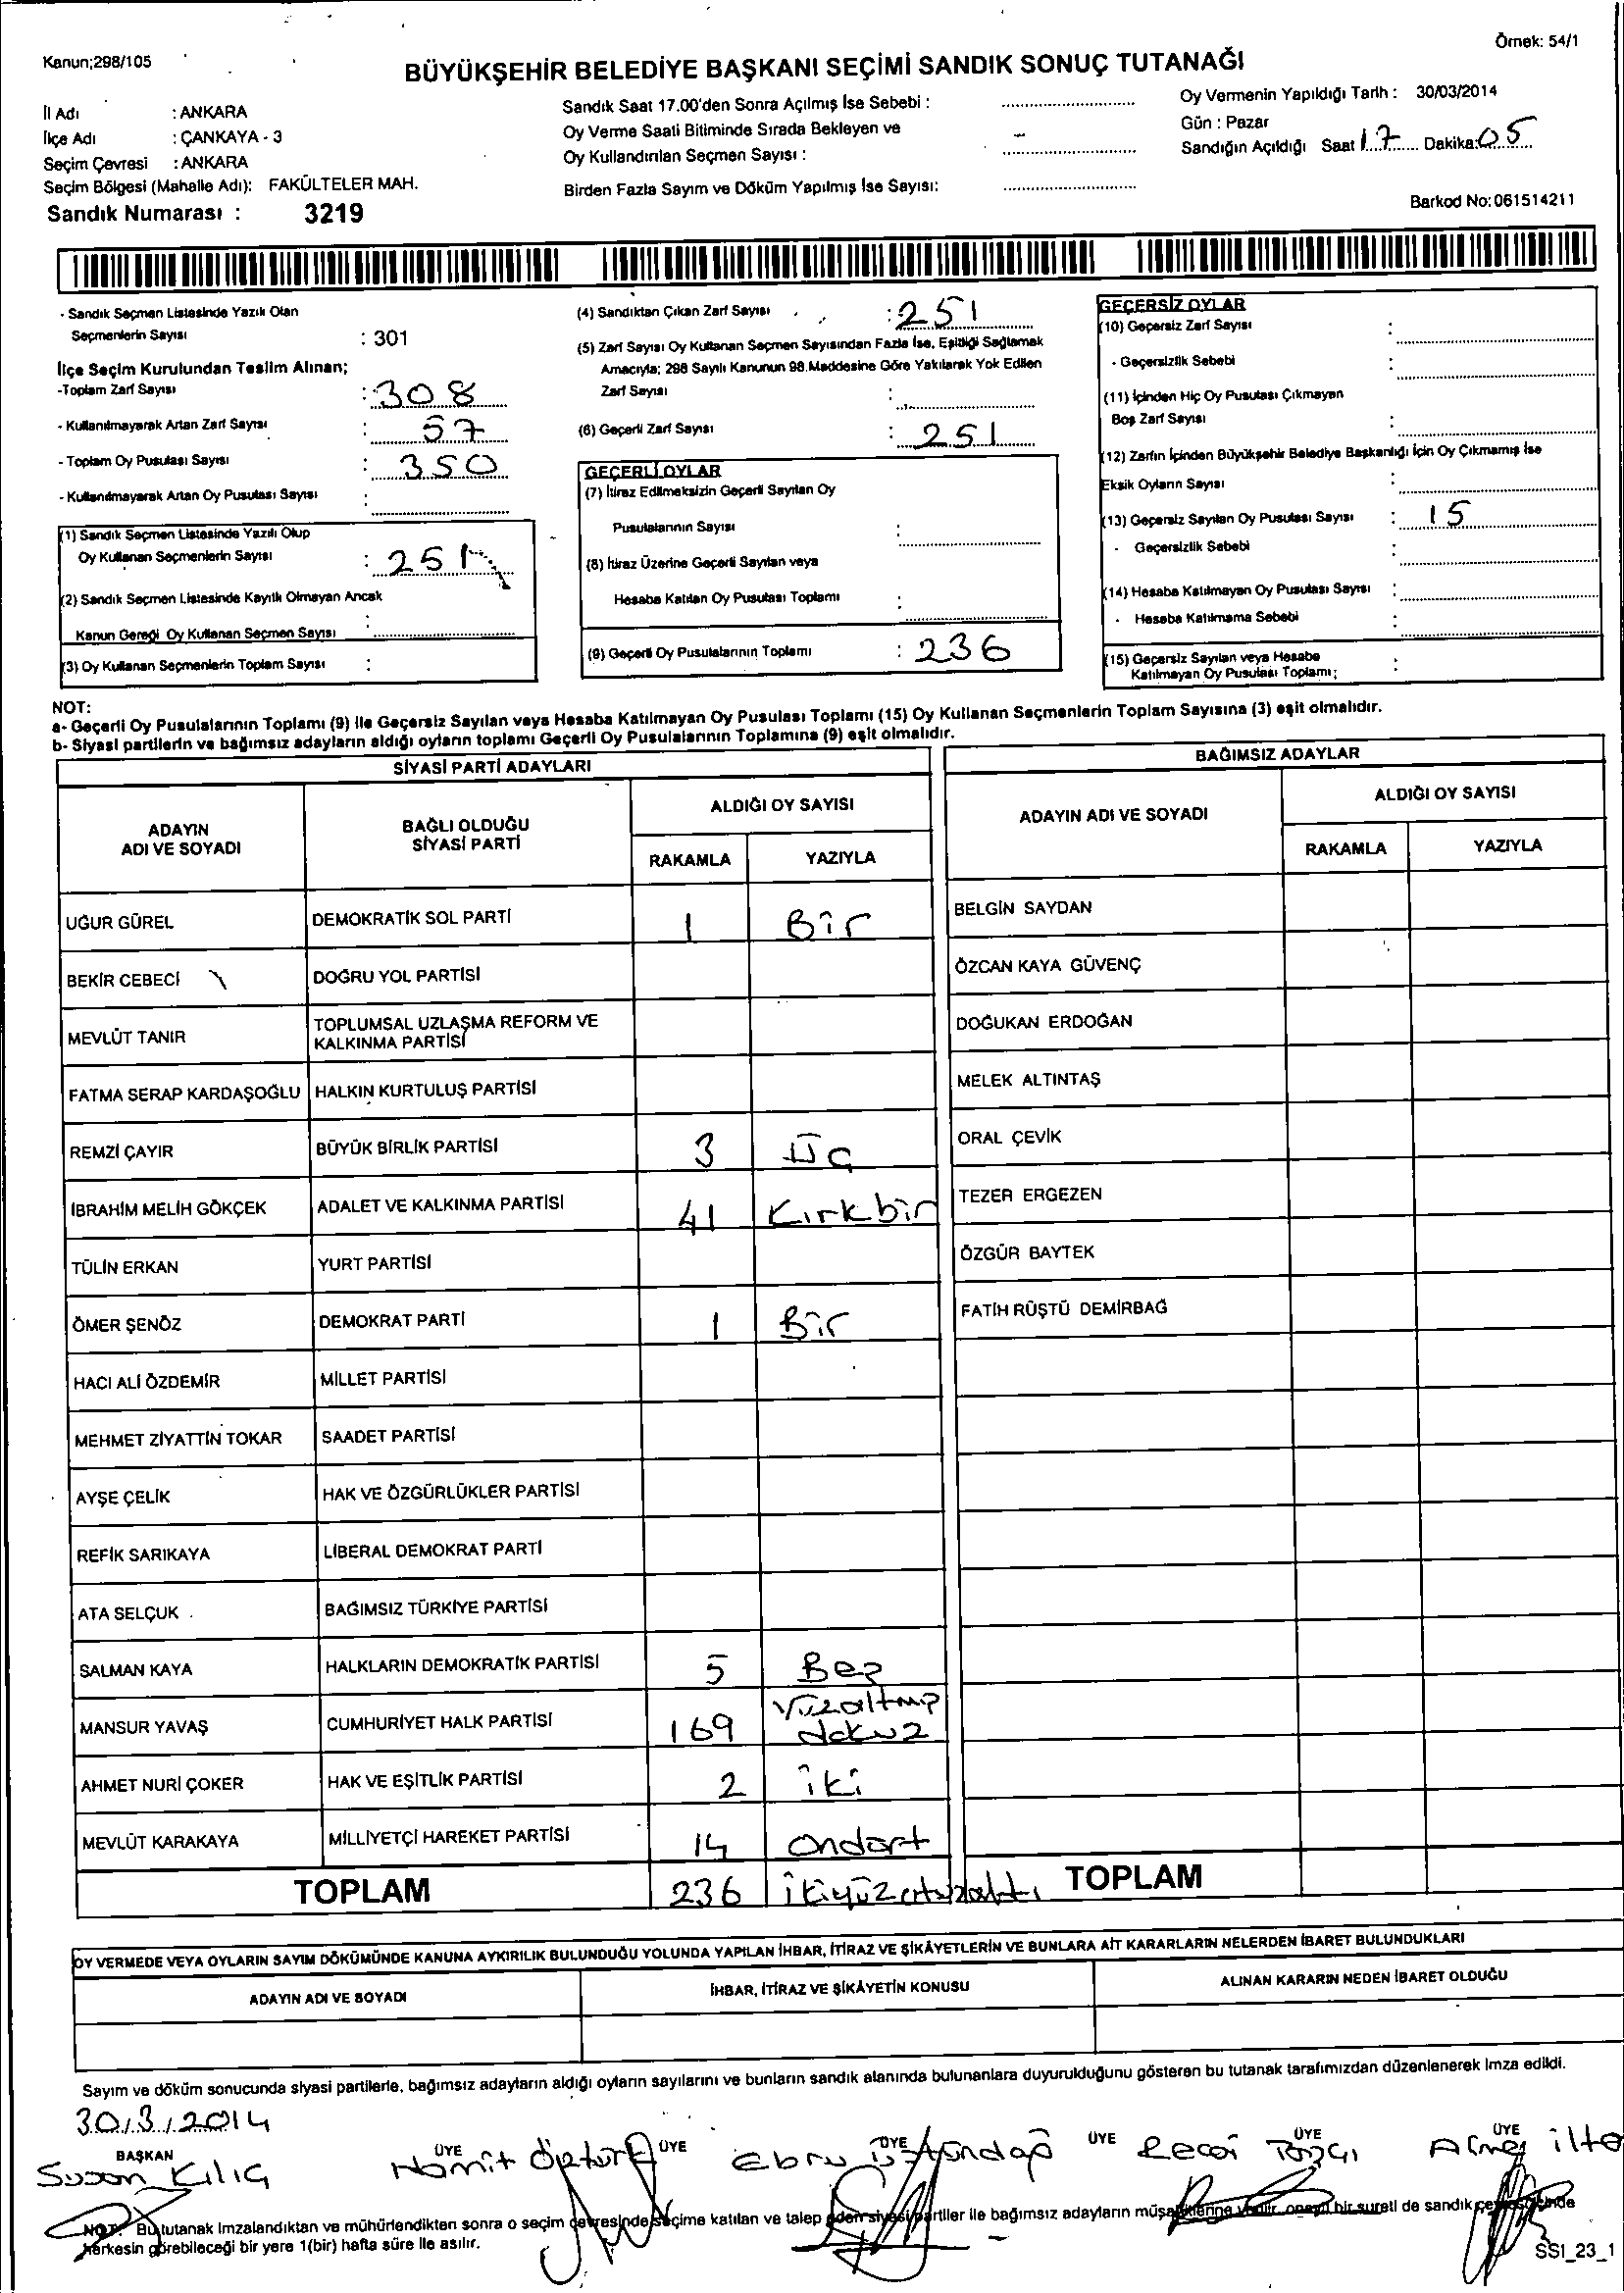 Örnek: 54/1
Kanun;298/105
BÜYÜKŞEHİR BELEDİYE BAŞKANI SEÇİMİ SANDIK SONUÇ TUTANAĞI
İl Adı : ANKARA
İlçe Adı : ÇANKAYA - 3
Seçim Çevresi : ANKARA
Seçim Bölgesi (Mahalle Adı): FAKÜLTELER MAH.
Sandık Numarası : 3219
Sandık Saat 17.00'den Sonra Açılmış İse Sebebi :
Oy Verme Saati Bitiminde Sırada Bekleyen ve
Oy Kullandırılan Seçmen Sayısı :
Birden Fazla Sayım ve Döküm Yapılmış İse Sayısı:
Oy Vermenin Yapıldığı Tarih : 30/03/2014
Gün : Pazar
Sandığın Açıldığı Saat 17 Dakika: 05
Barkod No:061514211
- Sandık Seçmen Listesinde Yazılı Olan
Seçmenlerin Sayısı : 301
İlçe Seçim Kurulundan Teslim Alınan;
-Toplam Zarf Sayısı : 308
- Kullanılmayarak Artan Zarf Sayısı : 57
- Toplam Oy Pusulası Sayısı : 350
- Kullanılmayarak Artan Oy Pusulası Sayısı :
(1) Sandık Seçmen Listesinde Yazılı Olup
Oy Kullanan Seçmenlerin Sayısı : 251
(2) Sandık Seçmen Listesinde Kayıtlı Olmayan Ancak
Kanun Gereği Oy Kullanan Seçmen Sayısı :
(3) Oy Kullanan Seçmenlerin Toplam Sayısı :
(4) Sandıktan Çıkan Zarf Sayısı : 251
(5) Zarf Sayısı Oy Kullanan Seçmen Sayısından Fazla İse, Eşitliği Sağlamak
Amacıyla; 298 Sayılı Kanunun 98.Maddesine Göre Yakılarak Yok Edilen
Zarf Sayısı :
(6) Geçerli Zarf Sayısı : 251
GEÇERLİ OYLAR
(7) İtiraz Edilmeksizin Geçerli Sayılan Oy
Pusulalarının Sayısı :
(8) İtiraz Üzerine Geçerli Sayılan veya
Hesaba Katılan Oy Pusulası Toplamı :
(9) Geçerli Oy Pusulalarının Toplamı : 236
GEÇERSİZ OYLAR
(10) Geçersiz Zarf Sayısı :
- Geçersizlik Sebebi :
(11) İçinden Hiç Oy Pusulası Çıkmayan
Boş Zarf Sayısı :
(12) Zarfın İçinden Büyükşehir Belediye Başkanlığı İçin Oy Çıkmamış İse
Eksik Oyların Sayısı :
(13) Geçersiz Sayılan Oy Pusulası Sayısı : 15
- Geçersizlik Sebebi :
(14) Hesaba Katılmayan Oy Pusulası Sayısı :
- Hesaba Katılmama Sebebi :
(15) Geçersiz Sayılan veya Hesaba
Katılmayan Oy Pusulası Toplamı; :
NOT:
a- Geçerli Oy Pusulalarının Toplamı (9) ile Geçersiz Sayılan veya Hesaba Katılmayan Oy Pusulası Toplamı (15) Oy Kullanan Seçmenlerin Toplam Sayısına (3) eşit olmalıdır.
b- Siyasi partilerin ve bağımsız adayların aldığı oyların toplamı Geçerli Oy Pusulalarının Toplamına (9) eşit olmalıdır.
SİYASİ PARTİ ADAYLARI
ADAYIN ADI VE SOYADI BAĞLI OLDUĞU SİYASİ PARTİ ALDIĞI OY SAYISI
RAKAMLA YAZIYLA
UĞUR GÜREL DEMOKRATİK SOL PARTİ 1 Bir
BEKİR CEBECİ DOĞRU YOL PARTİSİ
MEVLÜT TANIR TOPLUMSAL UZLAŞMA REFORM VE KALKINMA PARTİSİ
FATMA SERAP KARDAŞOĞLU HALKIN KURTULUŞ PARTİSİ
REMZİ ÇAYIR BÜYÜK BİRLİK PARTİSİ 3 Üç
İBRAHİM MELİH GÖKÇEK ADALET VE KALKINMA PARTİSİ 41 Kırkbir
TÜLİN ERKAN YURT PARTİSİ
ÖMER ŞENÖZ DEMOKRAT PARTİ 1 Bir
HACI ALİ ÖZDEMİR MİLLET PARTİSİ
MEHMET ZİYATTİN TOKAR SAADET PARTİSİ
AYŞE ÇELİK HAK VE ÖZGÜRLÜKLER PARTİSİ
REFİK SARIKAYA LİBERAL DEMOKRAT PARTİ
ATA SELÇUK BAĞIMSIZ TÜRKİYE PARTİSİ
SALMAN KAYA HALKLARIN DEMOKRATİK PARTİSİ 5 Beş
MANSUR YAVAŞ CUMHURİYET HALK PARTİSİ 169 Yüzaltmış dokuz
AHMET NURİ ÇOKER HAK VE EŞİTLİK PARTİSİ 2 iki
MEVLÜT KARAKAYA MİLLİYETÇİ HAREKET PARTİSİ 14 Ondört
TOPLAM 236 ikiyüzotuzaltı
BAĞIMSIZ ADAYLAR
ADAYIN ADI VE SOYADI ALDIĞI OY SAYISI
RAKAMLA YAZIYLA
BELGİN SAYDAN
ÖZCAN KAYA GÜVENÇ
DOĞUKAN ERDOĞAN
MELEK ALTINTAŞ
ORAL ÇEVİK
TEZER ERGEZEN
ÖZGÜR BAYTEK
FATİH RÜŞTÜ DEMİRBAĞ
TOPLAM
OY VERMEDE VEYA OYLARIN SAYIM DÖKÜMÜNDE KANUNA AYKIRILIK BULUNDUĞU YOLUNDA YAPILAN İHBAR, İTİRAZ VE ŞİKÂYETLERİN VE BUNLARA AİT KARARLARIN NELERDEN İBARET BULUNDUKLARI
ADAYIN ADI VE SOYADI İHBAR, İTİRAZ VE ŞİKÂYETİN KONUSU ALINAN KARARIN NEDEN İBARET OLDUĞU
Sayım ve döküm sonucunda siyasi partilerle, bağımsız adayların aldığı oyların sayılarını ve bunların sandık alanında bulunanlara duyurulduğunu gösteren bu tutanak tarafımızdan düzenlenerek imza edildi.
30/3/2014
BAŞKAN ÜYE ÜYE ÜYE ÜYE ÜYE ÜYE
Suzan Kılıç Hamit Öztürk Ebru
NOT: Bu tutanak imzalandıktan ve mühürlendikten sonra o seçim çevresinde seçime katılan ve talep eden siyasi partiler ile bağımsız adayların müşahitlerine verilir, onaylı bir sureti de sandık çevresinde
herkesin görebileceği bir yere 1(bir) hafta süre ile asılır.
SS1_23_1